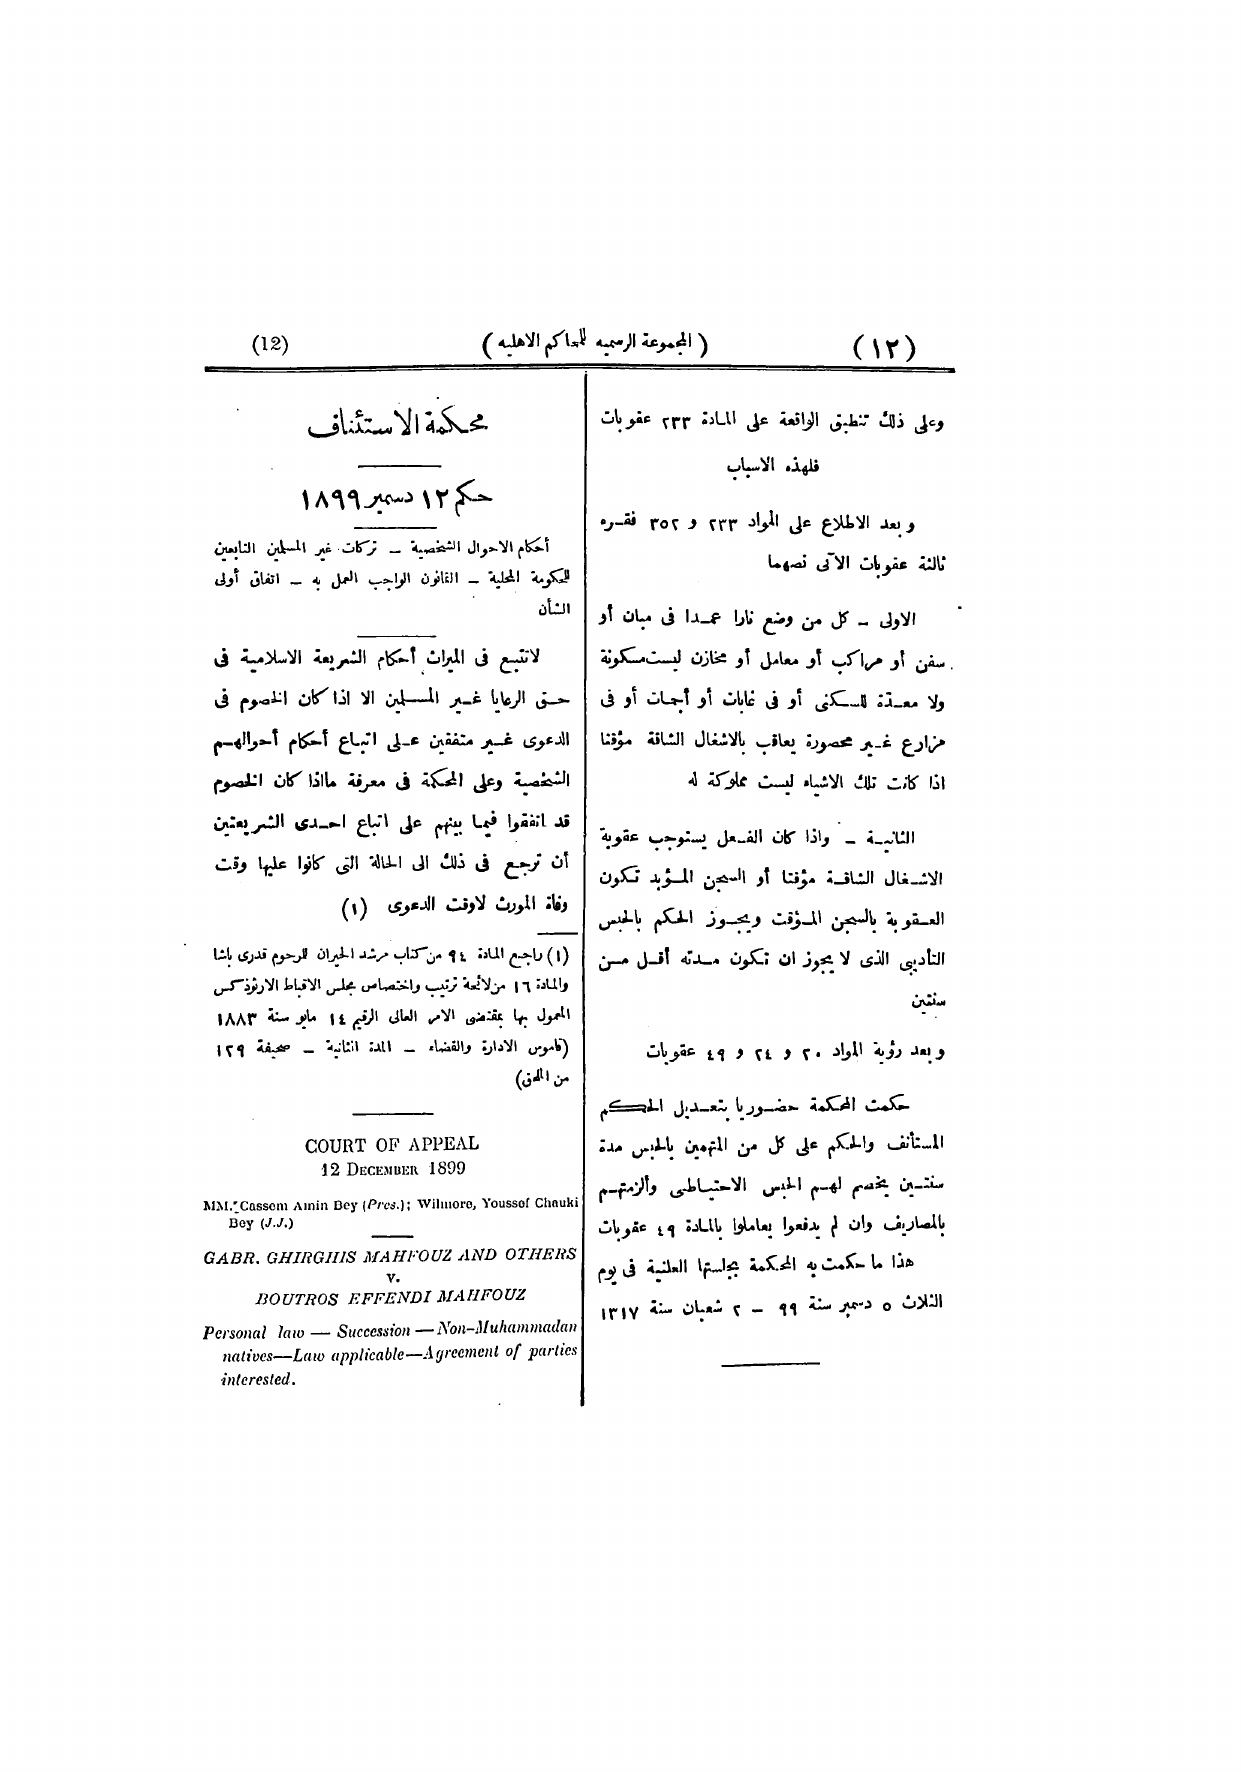 (١٢) (المجموعة الرسميه للمحاكم الاهليه) (12)
وعلى ذلك تنطبق الواقعة على المادة ٢٣٣ عقوبات
فلهذه الاسباب
وبعد الاطلاع على المواد ٢٣٣ و ٣٥٢ فقره
ثالثة عقوبات الآتى نصهما
الاولى - كل من وضع نارا عمدا فى مبان أو
سفن أو مراكب أو معامل أو مخازن ليست مسكونة
ولا معدّة للسكنى أو فى غابات أو أجمات أو فى
مزارع غير محصورة يعاقب بالاشغال الشاقة مؤقتا
اذا كانت تلك الاشياء ليست مملوكة له
الثانية - واذا كان الفعل يستوجب عقوبة
الاشغال الشاقة مؤقتا أو السجن المؤبد تكون
العقوبة بالسجن المؤقت ويجوز الحكم بالحبس
التأديبى الذى لا يجوز ان تكون مدته أقل من
سنتين
وبعد رؤية المواد ٢٠ و ٢٤ و ٤٩ عقوبات
حكمت المحكمة حضوريا بتعديل الحكم
المستأنف والحكم على كل من المتهمين بالحبس مدة
سنتين يخصم لهم الحبس الاحتياطى وألزمتهم
بالمصاريف وان لم يدفعوا يعاملوا بالمادة ٤٩ عقوبات
هذا ما حكمت به المحكمة بجلستها العلنية فى يوم
الثلاث ٥ دسمبر سنة ٩٩ - ٢ شعبان سنة ١٣١٧
محكمة الاستئناف
حكم ١٢ دسمبر ١٨٩٩
أحكام الاحوال الشخصية - تركات غير المسلمين التابعين
للحكومة المحلية - القانون الواجب العمل به - اتفاق أولى
الشأن
لا تتبع فى الميراث أحكام الشريعة الاسلامية فى
حق الرعايا غير المسلمين الا اذا كان الخصوم فى
الدعوى غير متفقين على اتباع أحكام أحوالهم
الشخصية وعلى المحكمة فى معرفة مااذا كان الخصوم
قد اتفقوا فيما بينهم على اتباع احدى الشريعتين
أن ترجع فى ذلك الى الحالة التى كانوا عليها وقت
وفاة المورث لاوقت الدعوى (١)
(١) راجع المادة ٩٤ من كتاب مرشد الحيران للرحوم قدرى باشا
والمادة ١٦ من لائحة ترتيب واختصاص مجلس الاقباط الارثوذكس
المعمول بها بمقتضى الامر العالى الرقيم ١٤ مايو سنة ١٨٨٣
(قاموس الادارة والقضاء - المدة الثانية - صحيفة ١٢٩
من الملحق)
COURT OF APPEAL
12 DECEMBER 1899
MM. Cassem Amin Bey (Pres.); Wilmore, Youssef Chauki
Bey (J.J.)
GABR. GHIRGHIS MAHFOUZ AND OTHERS
v.
BOUTROS EFFENDI MAHFOUZ
Personal law — Succession — Non-Muhammadan
natives—Law applicable—Agreement of parties
interested.